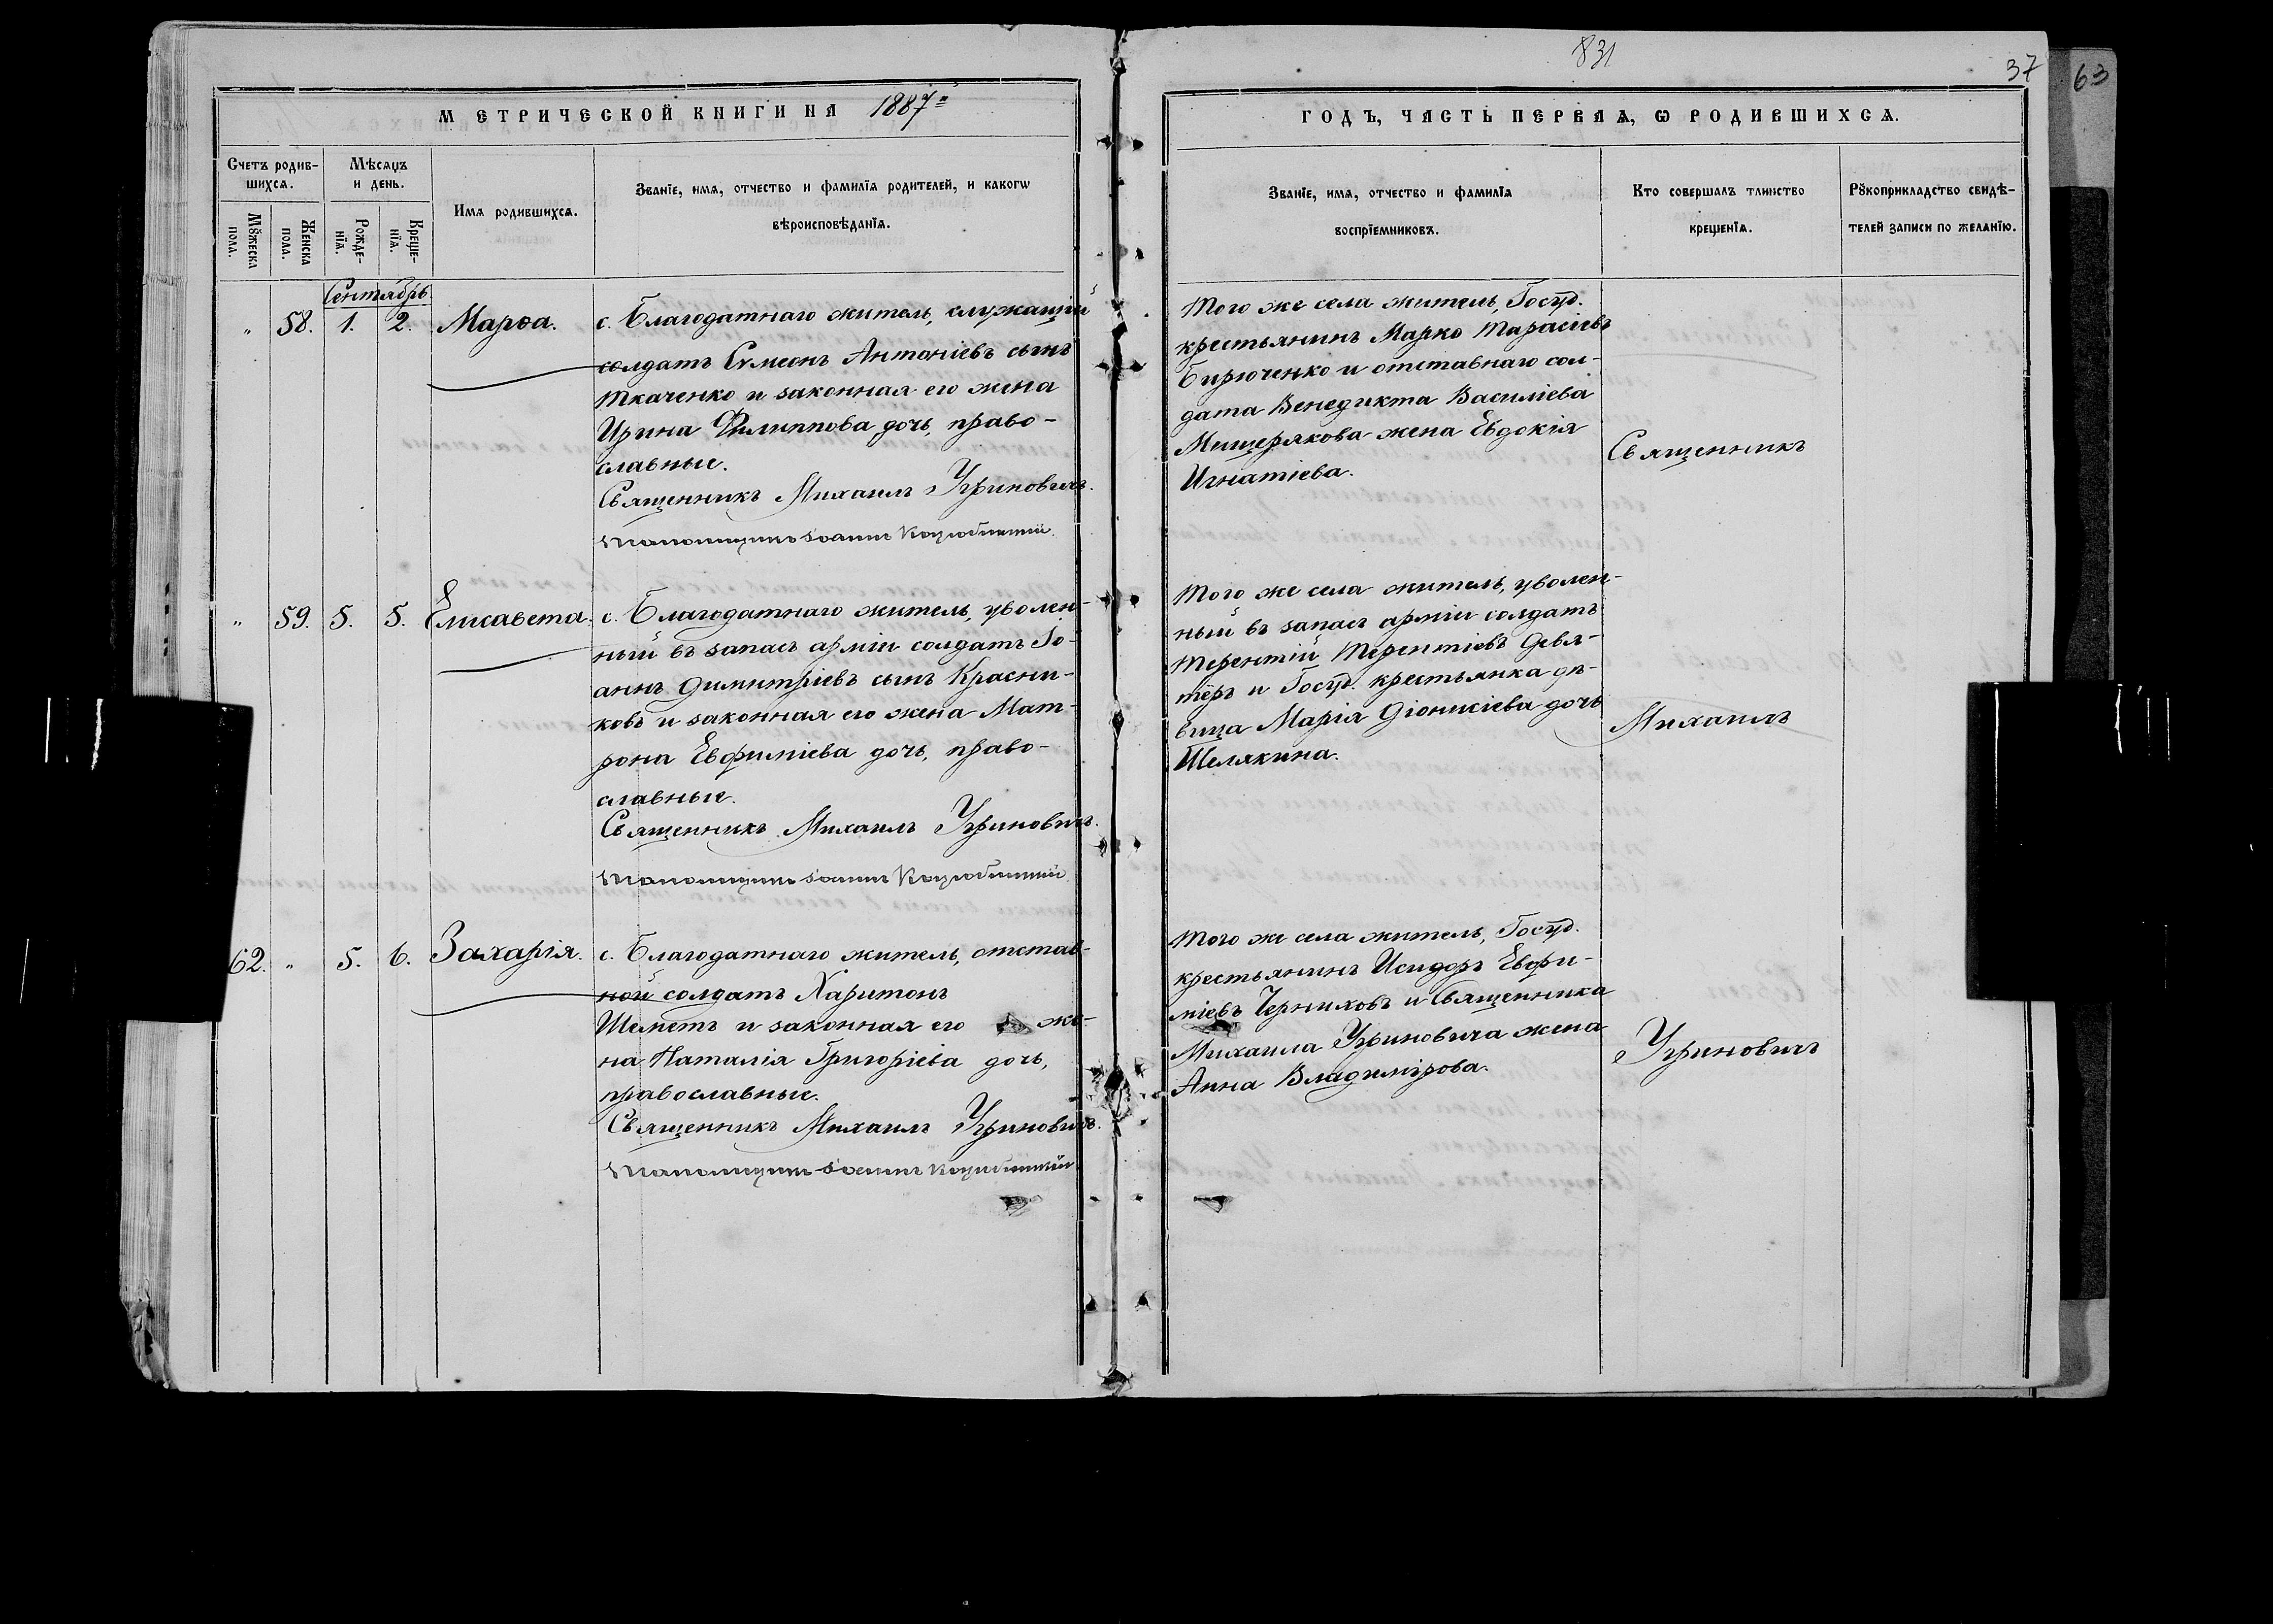 831
37
63
МЕТРИЧЕСКОЙ КНИГИ НА 1887=
ГОДЪ, ЧАСТЬ ПЕРВАЯ, Ѡ РОДИВШИХСѦ.
Счетъ родив-
шихсѧ.
Мѣсѧцъ
и день.
Мꙋжеска
пола.
Женска
пола.
Рожде-
нїѧ.
Креще-
нїѧ.
Имѧ родившихсѧ.
Званїе, имѧ, отчество и фамилїѧ родителей, и какогѡ
вѣроисповѣданїѧ.
Званїе, имѧ, отчество и фамилїѧ
воспрїемниковъ.
Кто совершалъ таинство
крещенїѧ.
Рꙋкоприкладство свидѣ-
телей записи по желанїю.
Сентябрь
" 58. 1. 2. Марѳа.
с. Благодатнаго житель, служащій
солдатъ Сѵмеонъ Антоніевъ сынъ
Ткаченко и законная его жена
Ирина Филиппова дочь, право-
славные.
Священникъ Михаилъ Угриновичъ.
Псаломщикъ Іоаннъ Коцюбинскій.
Того же села житель, Госуд.
крестьянинъ Марко Тарасіевъ
Бирюченко и отставнаго сол-
дата Венедикта Василіева
Мищерякова жена Евдокія
Игнатіева.
Священникъ
" 59. 5. 5. Елисавета.
с. Благодатнаго житель, уволен-
ный въ запасъ арміи солдатъ Іо-
аннъ Димитріевъ сынъ Красни-
ковъ и законная его жена Мат-
рона Евфиміева дочь, право-
славные.
Священникъ Михаилъ Угриновичъ.
Псаломщикъ Іоаннъ Коцюбинскій.
Того же села житель, уволен-
ный въ запасъ арміи солдатъ
Терентій Терентіевъ Девя-
теръ и Госуд. крестьянка дѣ-
вица Марія Діонисіева дочь
Шелякина.
Михаилъ
62. " 5. 6. Захарія.
с. Благодатнаго житель, отстав-
ной солдатъ Харитонъ
Шеметъ и законная его же-
на Наталія Григоріева дочь,
православные.
Священникъ Михаилъ Угриновичъ.
Псаломщикъ Іоаннъ Коцюбинскій.
Того же села житель, Госуд.
крестьянинъ Исидоръ Евфи-
міевъ Черниховъ и Священника
Михаила Угриновича жена
Анна Владимірова.
Угриновичъ